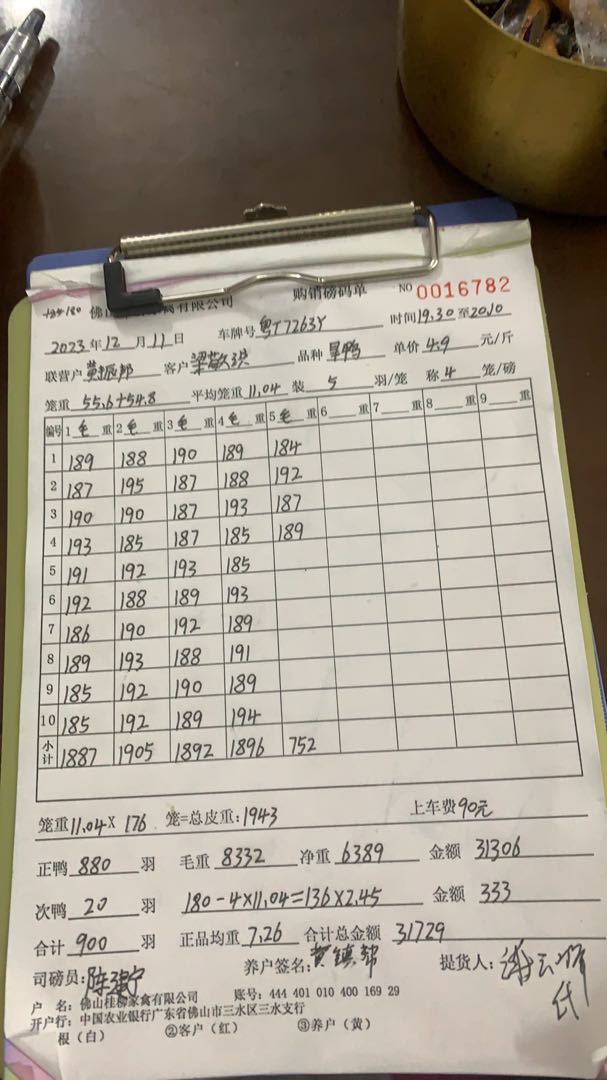 购销磅码单 NO 0016782
佛山 禽有限公司
2023年12月11日 车牌号 粤T7263Y 时间19.30至20.10
联营户 黄振邦 客户 品种 旱鸭 单价 4.9 元/斤
笼重 55.6+54.8 平均笼重 11.04 装 5 羽/笼 称 4 笼/磅
编号 1毛重 2毛重 3毛重 4毛重 5毛重 6 重 7 重 8 重 9 重
1 189 188 190 189 184
2 187 195 187 188 192
3 190 190 187 193 187
4 193 185 187 185 189
5 191 192 193 185
6 192 188 189 193
7 186 190 192 189
8 189 193 188 191
9 185 192 190 189
10 185 192 189 194
小计 1887 1905 1892 1896 752
笼重11.04× 176 笼=总皮重:1943 上车费90元
正鸭 880 羽 毛重 8332 净重 6389 金额 31306
次鸭 20 羽 180-4×11.04=136×2.45 金额 333
合计 900 羽 正品均重 7.26 合计总金额 31729
司磅员: 养户签名: 黄镇锦 提货人: 代
户 名: 佛山桂柳家禽有限公司 账号: 444 401 010 400 169 29
开户行: 中国农业银行广东省佛山市三水区三水支行
根（白） ②客户（红） ③养户（黄）